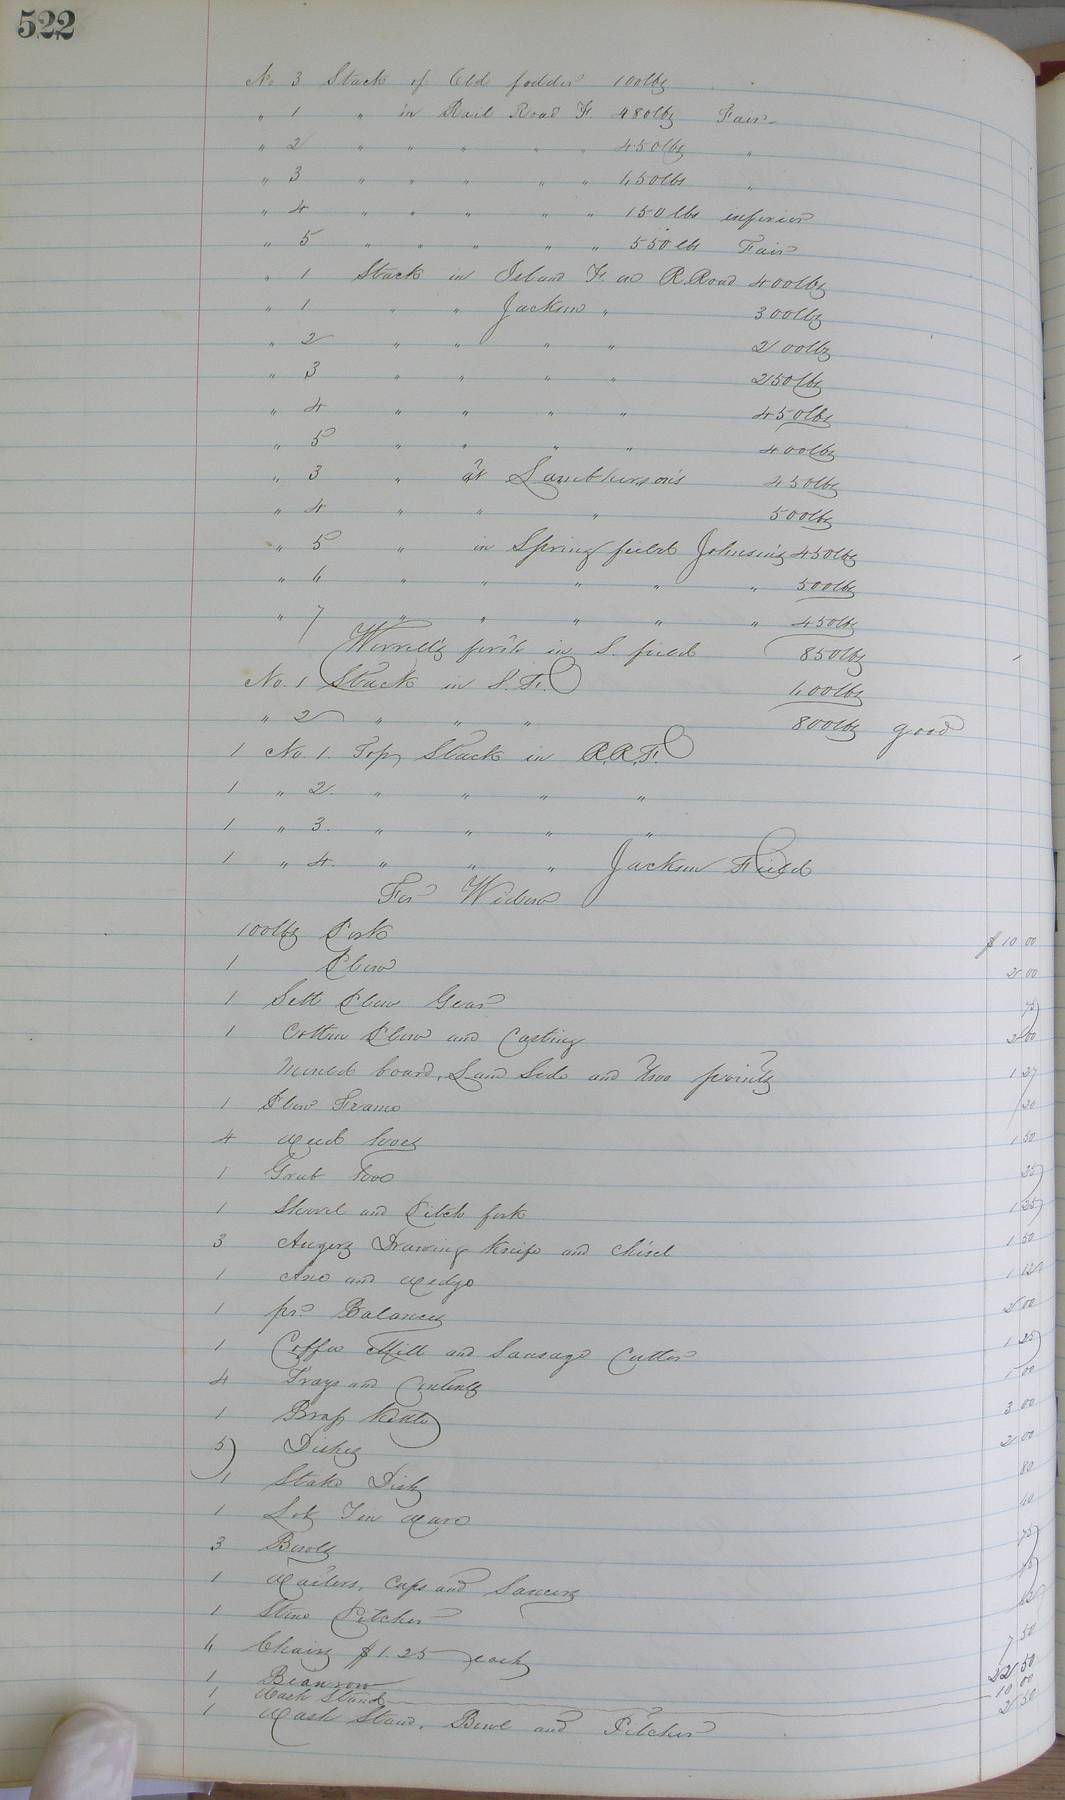 522
No 3 Stack of Old fodder 100lbs
" 1 " in Rail Road F. 480lbs Fair
" 2 " " " " " 450lbs "
" 3 " " " " " 650lbs "
" 4 " " " " " 150lbs inferior
" 5 " " " " " 550lbs Fair
" 1 Stack in Island F. on R.Road 400lbs
" 1 " " Jackson " 300lbs
" 2 " " " " 200lbs
" 3 " " " " 250lbs
" 4 " " " " 450lbs
" 5 " " " " 400lbs
" 3 " at Lamberson's 450lbs
" 4 " " " 500lbs
" 5 " in Spring field Johnsin's 450lbs
" 6 " " " " " 500lbs
" 7 " " " " " 450lbs
Worrell's first in S. field 850lbs
No. 1 Stack in S. F. 600lbs
" 2 " " " 800lbs good
1 No. 1. Top Stack in R.R.F.
1 " 2. " " " "
1 " 3. " " " "
1 " 4. " " " Jackson Field
For Widow
100lbs Pork $ 10 00
1 Plow 2 00
1 Sett Plow Gear 75
1 Cotton Plow and Casting 2 00
Mould board, Land Side and two points 1 27
1 Plow Frame 20
4 Weed hoes 1 50
1 Grub hoe 25
1 Shovel and Pitch fork 1 25
3 Augers Drawing Knife and Chisel 1 50
1 Axe and Wedge 1 12
1 pr. Balances 2 00
1 Coffee Mill and Sausage Cutter 1 25
4 Trays and Contents 1 00
1 Brass Kettle 3 00
5 Dishes 2 00
1 Stake Dish 80
1 Lot Tin Ware 40
3 Bowls 75
1 Waiters, Cups and Saucers
1 Stone Pitcher
6 Chairs $1.25 each 7 50
1 Beaurow 22 50
1 Wash Stand 10 00
1 Wash Stand, Bowl and Pitcher 2 50